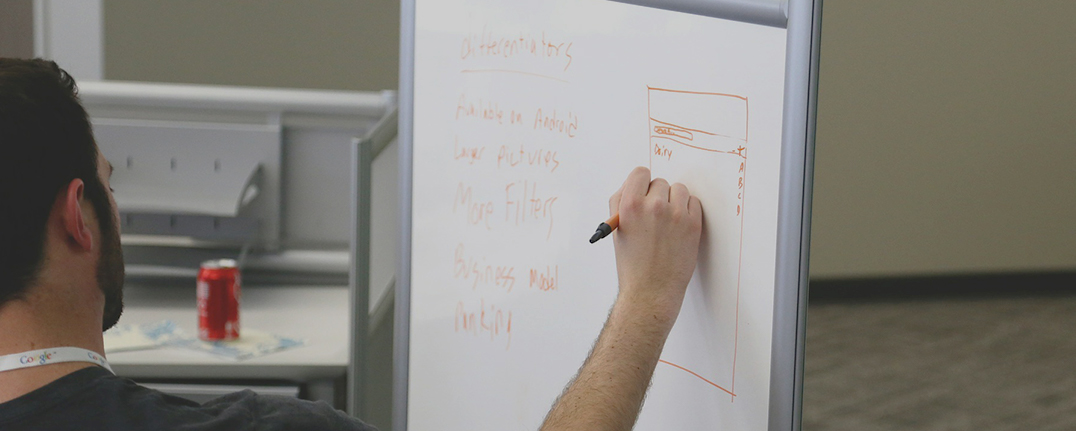 differentiators
Available on Android
Larger pictures
More Filters
Business Model
Ranking
Dairy
A
B
C
D
Google